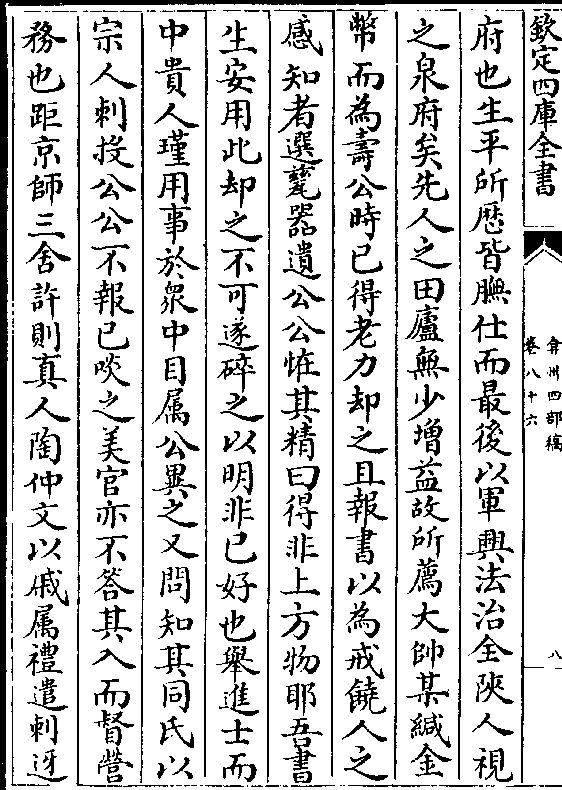 欽定四庫全書
弇州四部稿
卷八十六
八
府也生平所歷皆膴仕而最後以軍興法治全陝人視
之泉府矣先人之田廬無少增益故所薦大帥某緘金
幣而為壽公時已得老力却之且報書以為戒饒人之
感知者選甆器遺公公恠其精曰得非上方物耶吾書
生安用此却之不可遂碎之以明非已好也舉進士而
中貴人瑾用事於衆中目属公異之又問知其同氏以
宗人刺投公公不報已啖之美官亦不答其入而督營
務也距京師三舍許則真人陶仲文以戚属禮遣刺迓